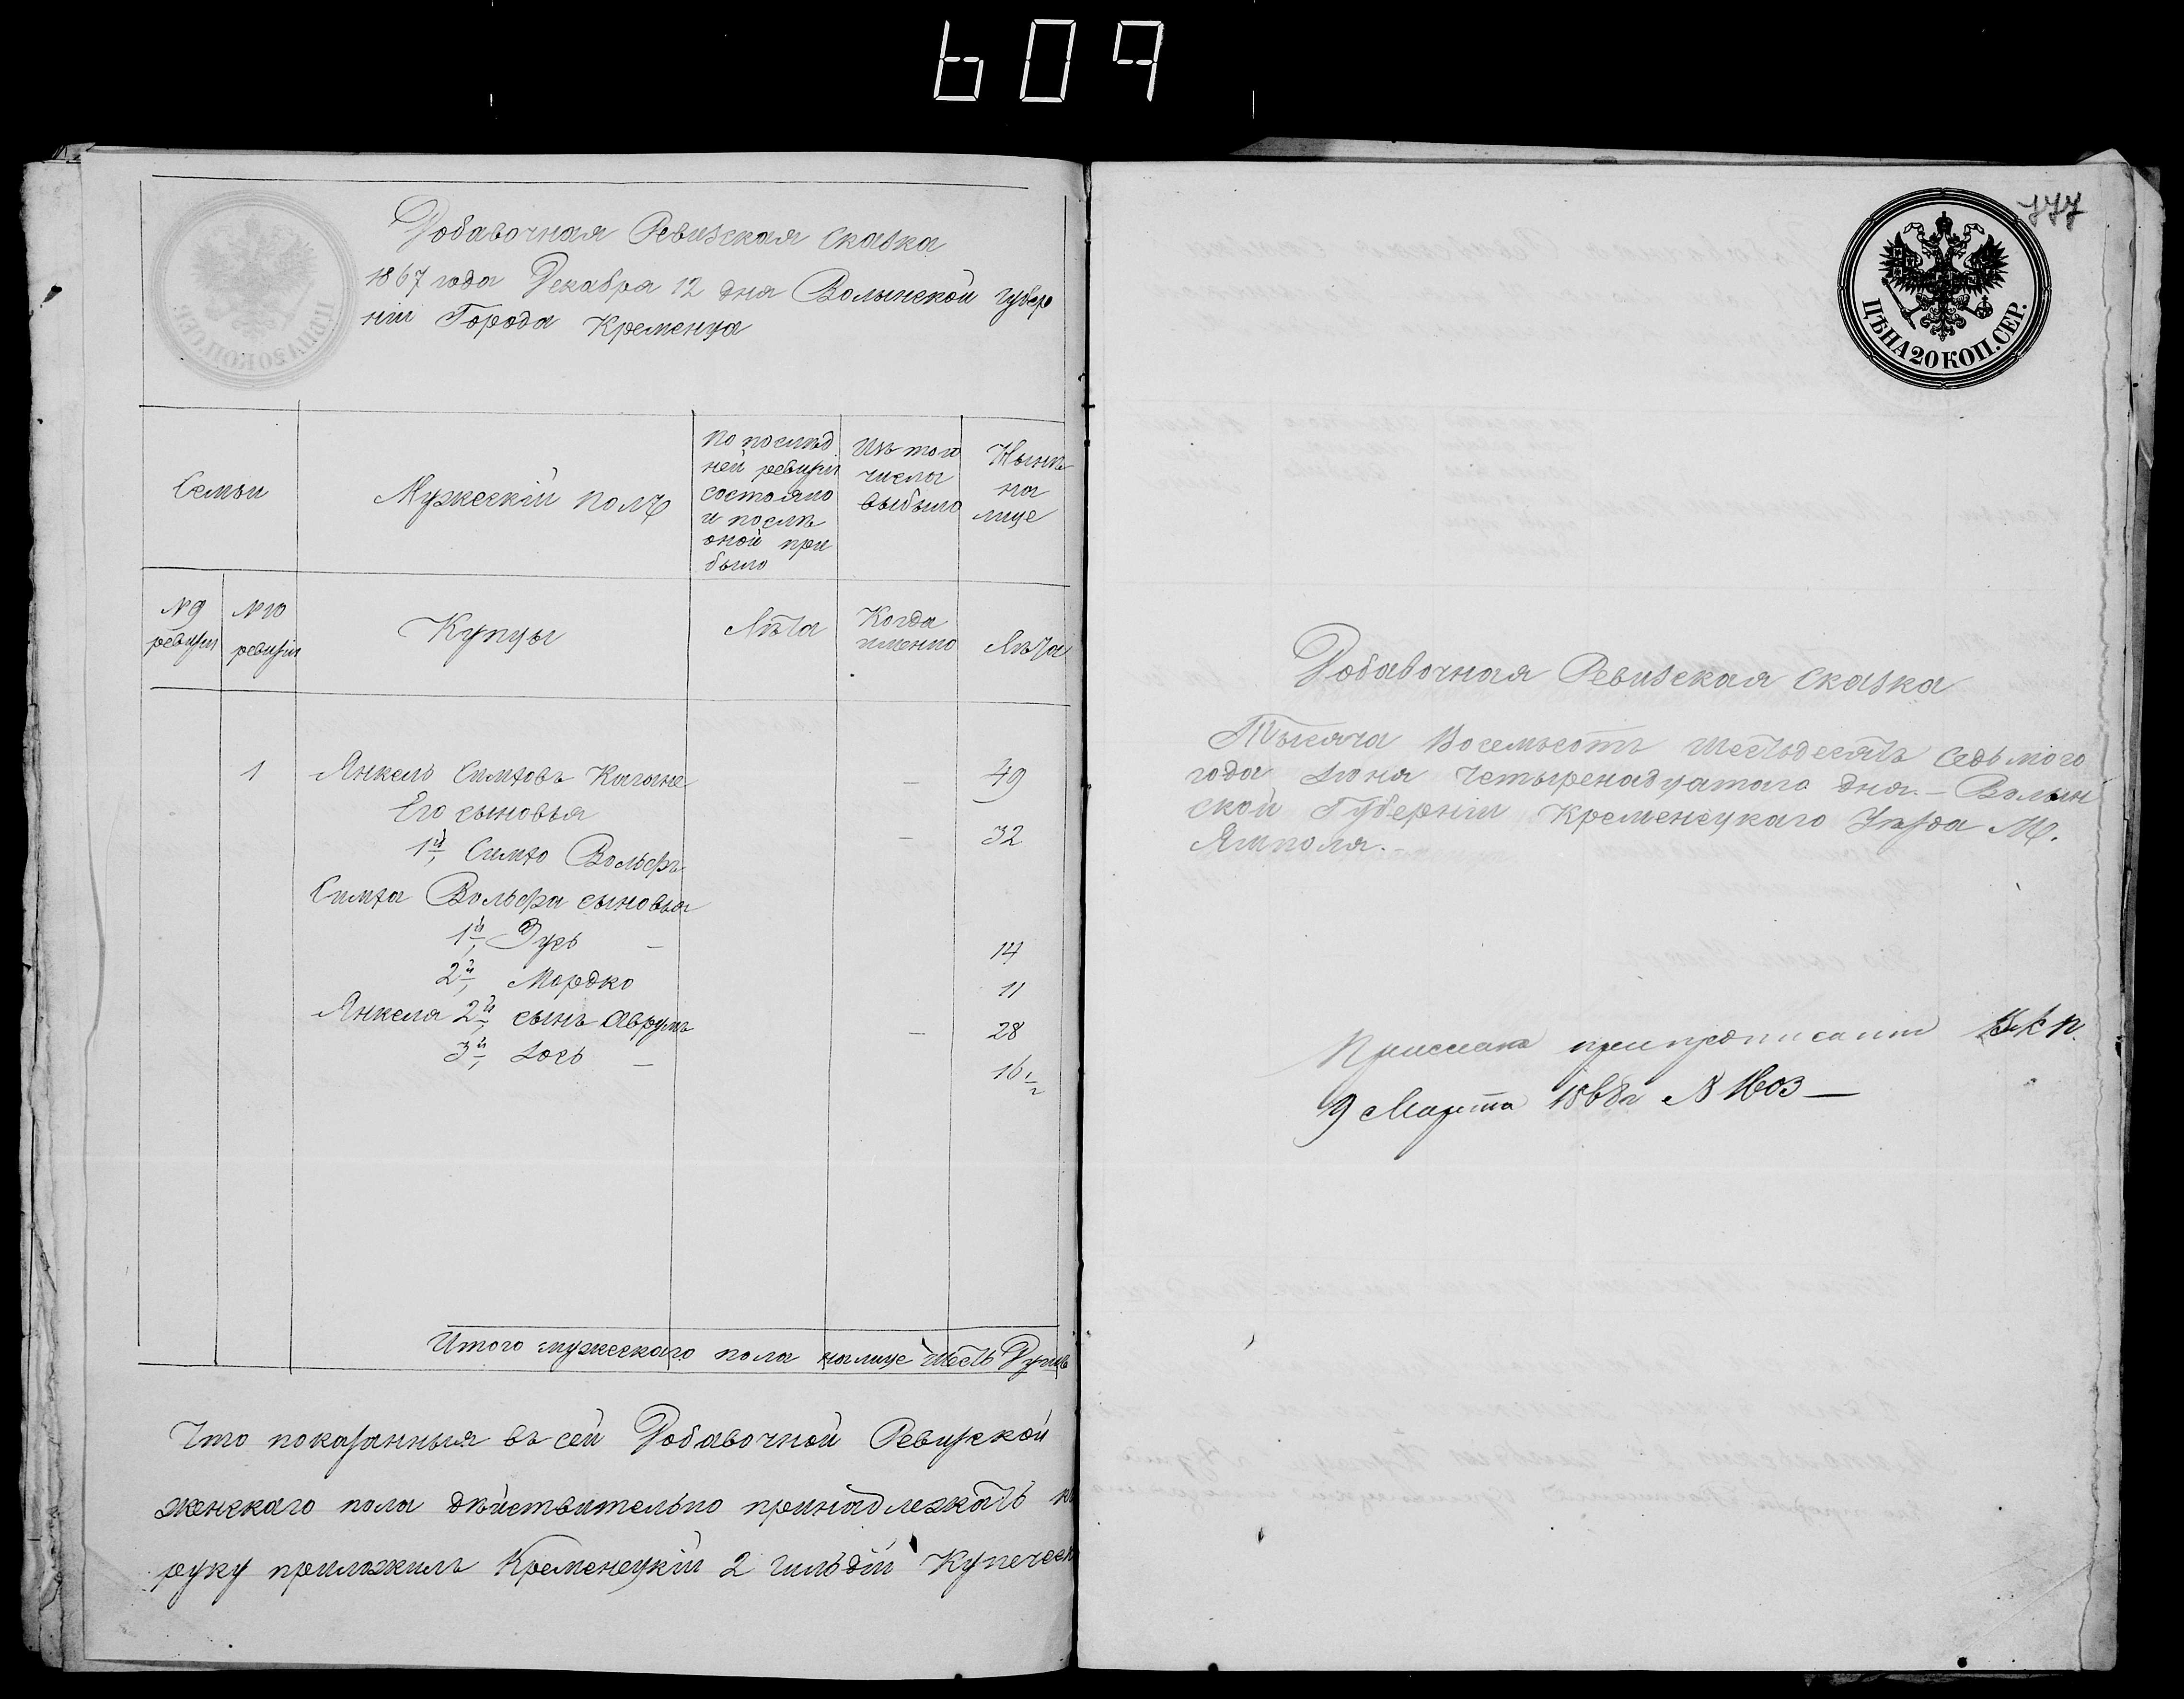 609
Добавочная Ревизская сказка
1867 года Декабря 12 дня Волынской Губер
ніи Города Кременца
Семьи
Мужескій полъ
По послѣд
ней ревизіи
состояло
и послѣ
оной при
было
Изъ того
числа
выбыло
Нынѣ
на
лице
№ 9
ревизіи
№ 10
ревизіи
Купцы
Лѣта
Когда
именно
Лѣта
1 Янкель Симховъ Кагане — 49
Его сыновья
1й, Симхо Вольфъ — 32
Симха Вольфа сыновья
1й, Зусь — 14
2й, Мордко 11
Янкеля 2й, сынъ Аврумъ — 28
3й, Іось — 16 1/2
Итого мужескаго пола налице шесть Душъ
Что показанныя въ сей Добавочной Ревизской
женскаго пола дѣйствительно принадлежатъ
руку приложилъ Кременецкій 2 гильдіи Купеческ
777
ЦѢНА 20 КОП. СЕР.
Добавочная Ревизская сказка
Тысяча Восемьсотъ шестьдесятъ седьмого
года Іюня Четыренадцатаго дня. — Волын
ской Губерніи Кременецкаго Уѣзда М.
Ямполя. —
Прислана при предписаніи В. К. П.
9 Марта 1868 г № 1603 —